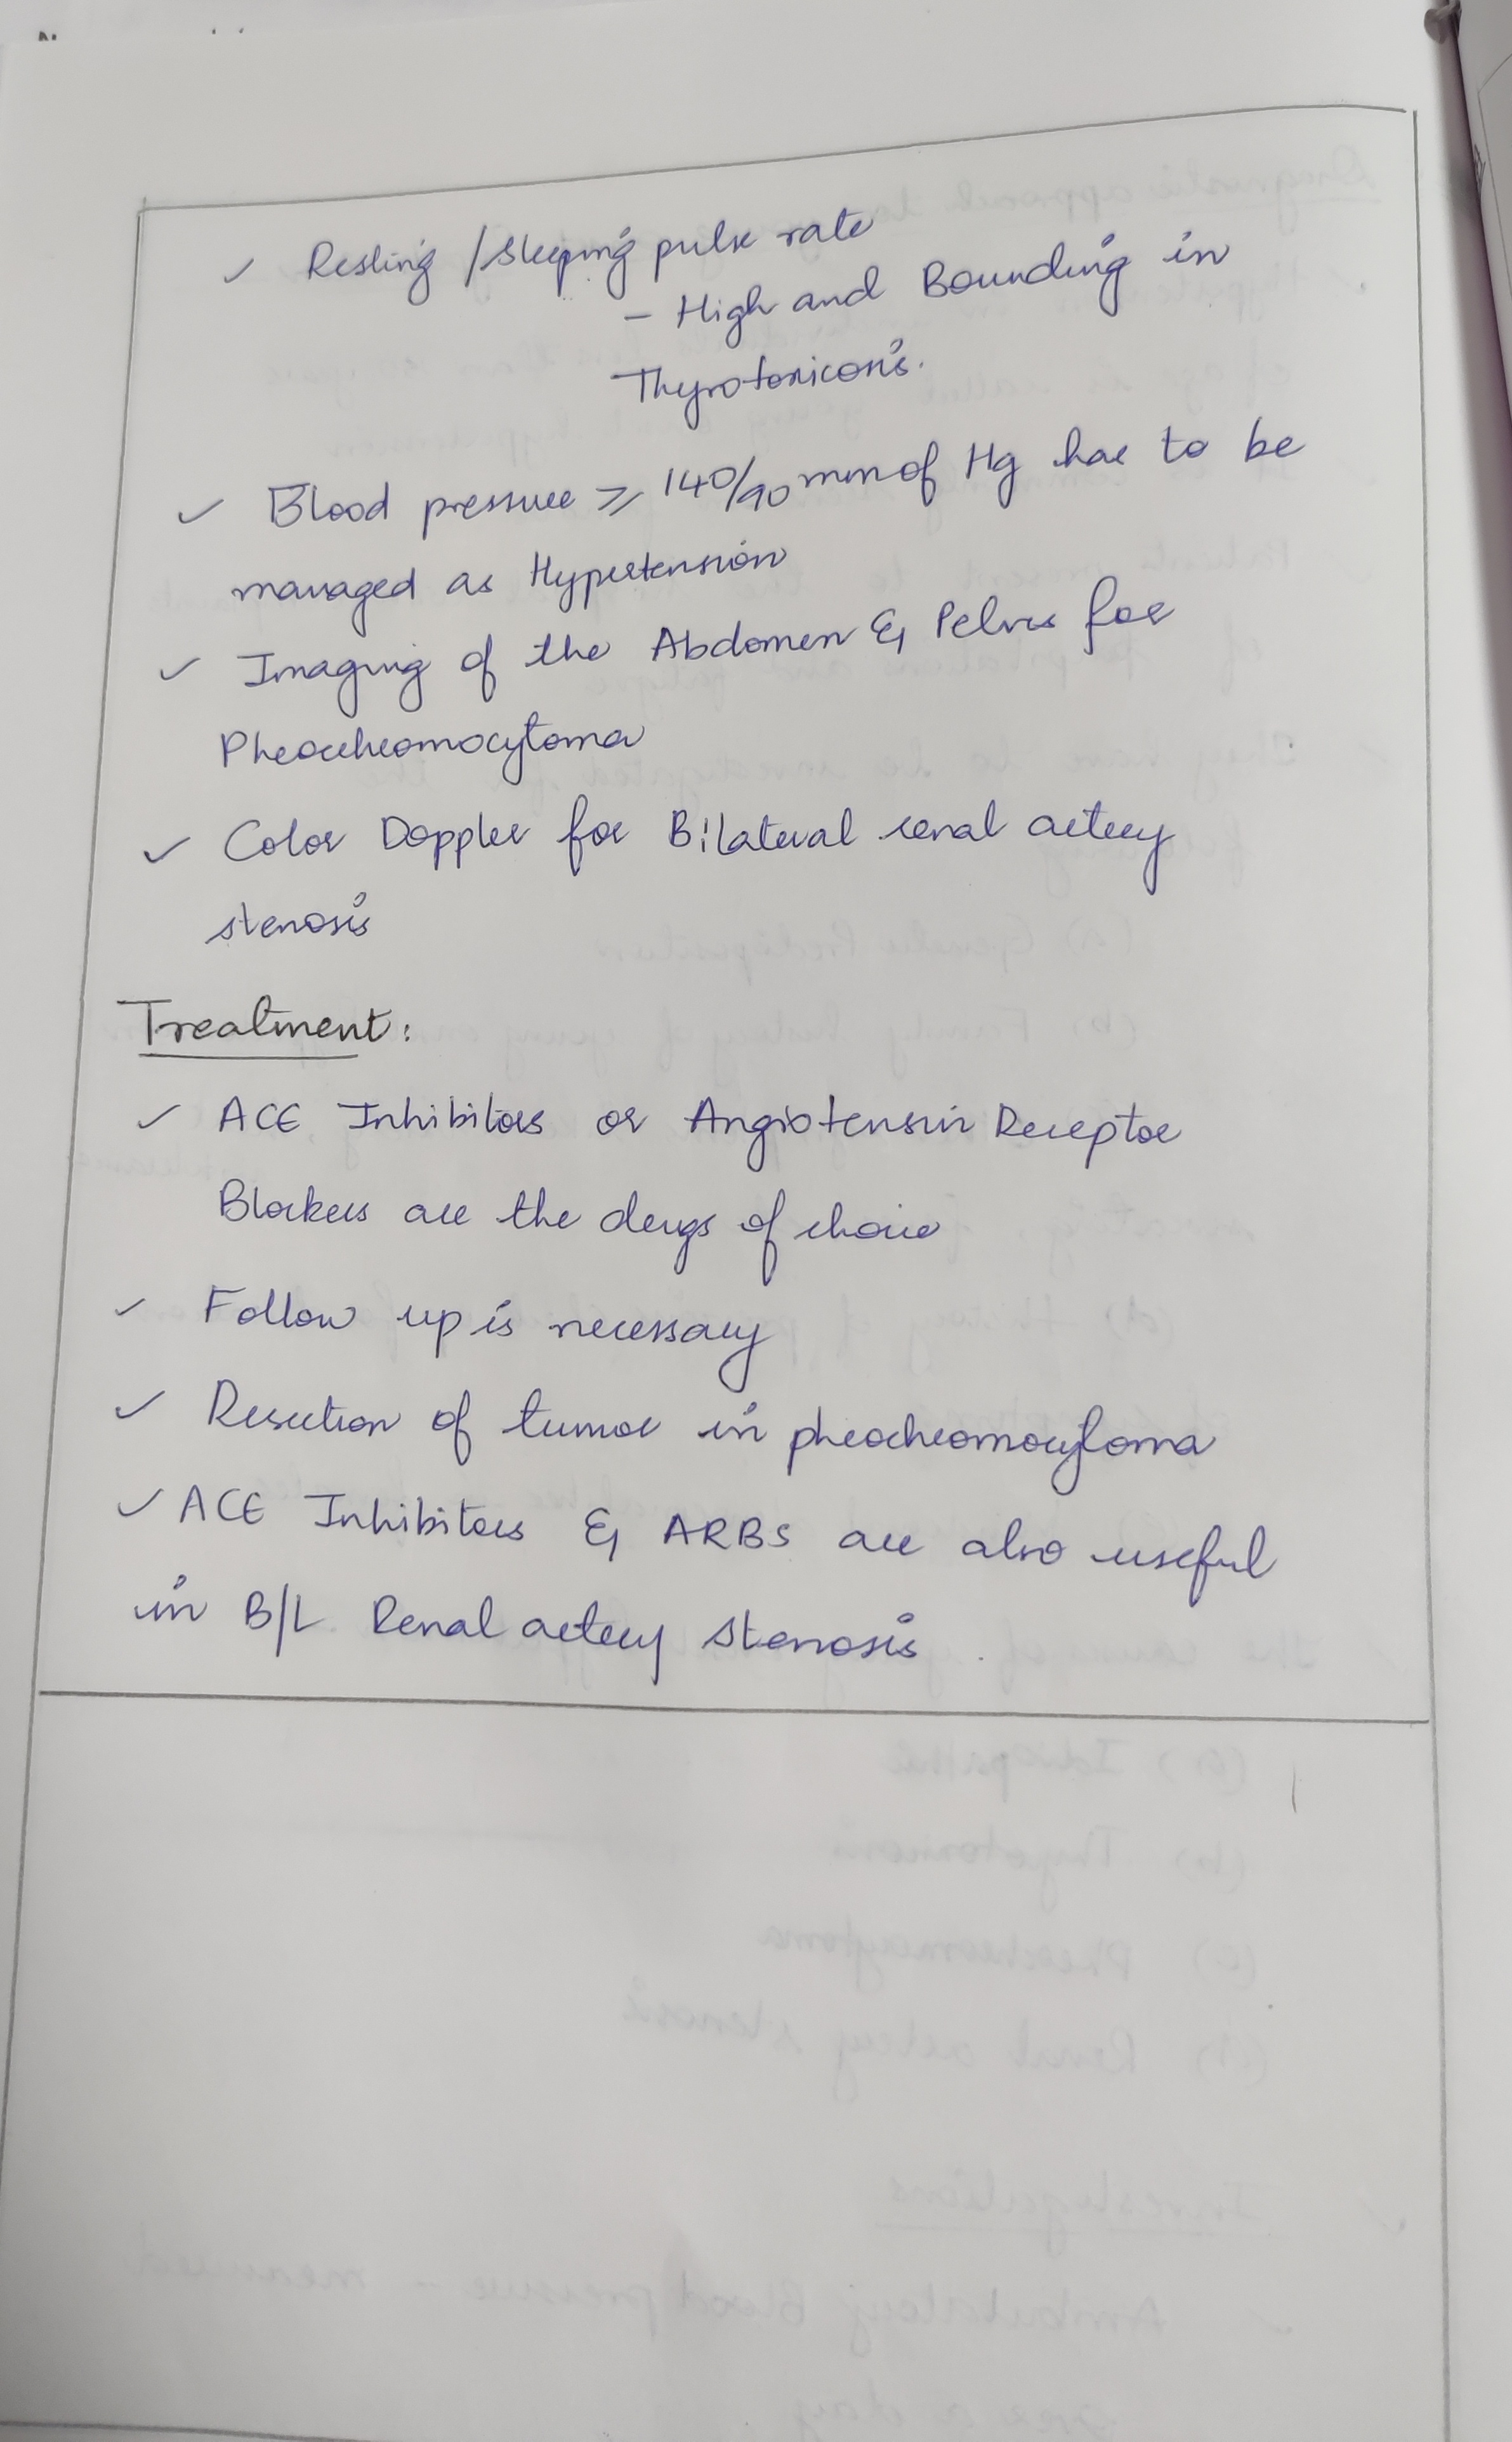 ✓ Resting / Sleeping pulse rate
- High and Bounding in
Thyrotoxicosis.
✓ Blood pressure ≥ 140/90 mm of Hg has to be
managed as Hypertension
✓ Imaging of the Abdomen & Pelvis for
Pheochromocytoma
✓ Color Doppler for Bilateral renal artery
stenosis
Treatment:
✓ ACE Inhibitors or Angiotensin Receptor
Blockers are the drugs of choice
✓ Follow up is necessary
✓ Resection of tumor in pheochromocytoma
✓ ACE Inhibitors & ARBS are also useful
in B/L Renal artery stenosis.